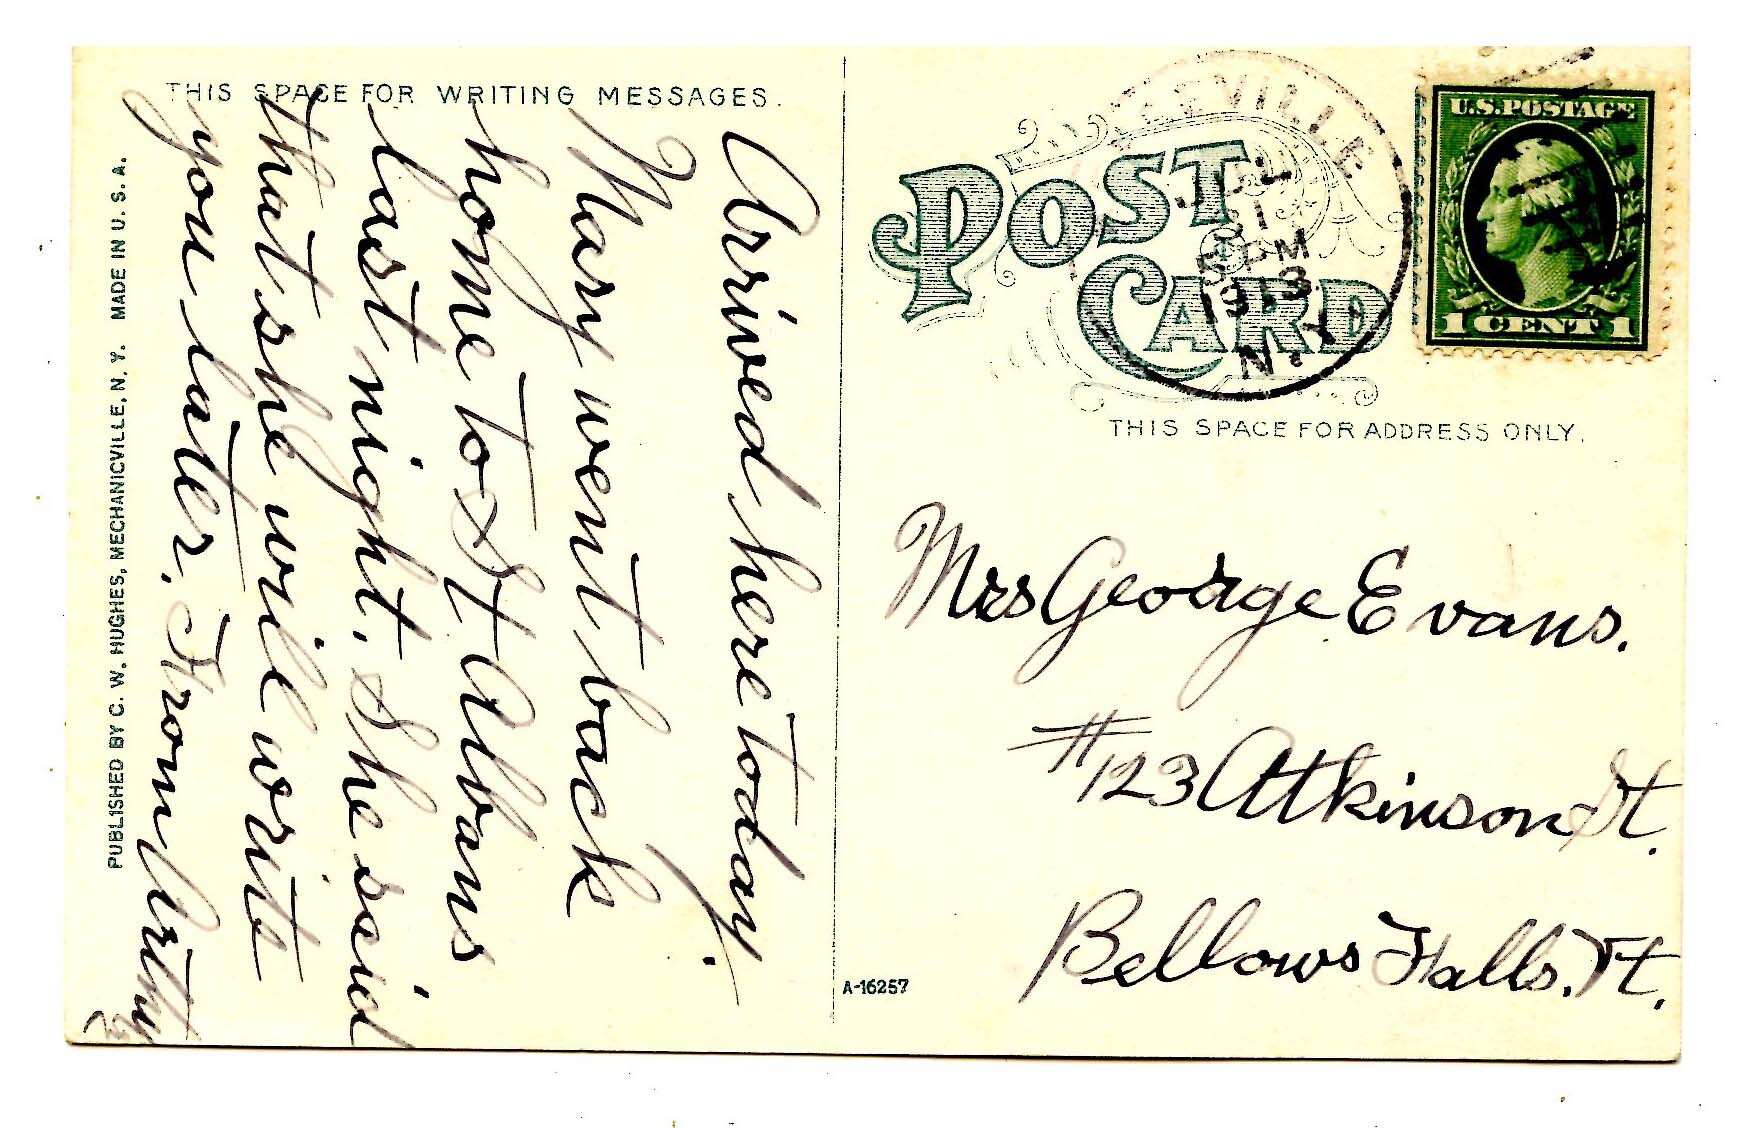 THIS SPACE FOR WRITING MESSAGES.
Arrived here today.
Mary went back
home to St Albans
last night. She said
that she will write
you later. From Arthur
PUBLISHED BY C. W. HUGHES, MECHANICVILLE, N. Y. MADE IN U. S. A.
A-16257
POST
CARD
VILLE
21
5 PM
1913
N.Y.
U.S. POSTAGE
1 CENT 1
THIS SPACE FOR ADDRESS ONLY.
Mrs George Evans.
#123 Atkinson St.
Bellows Falls. Vt.